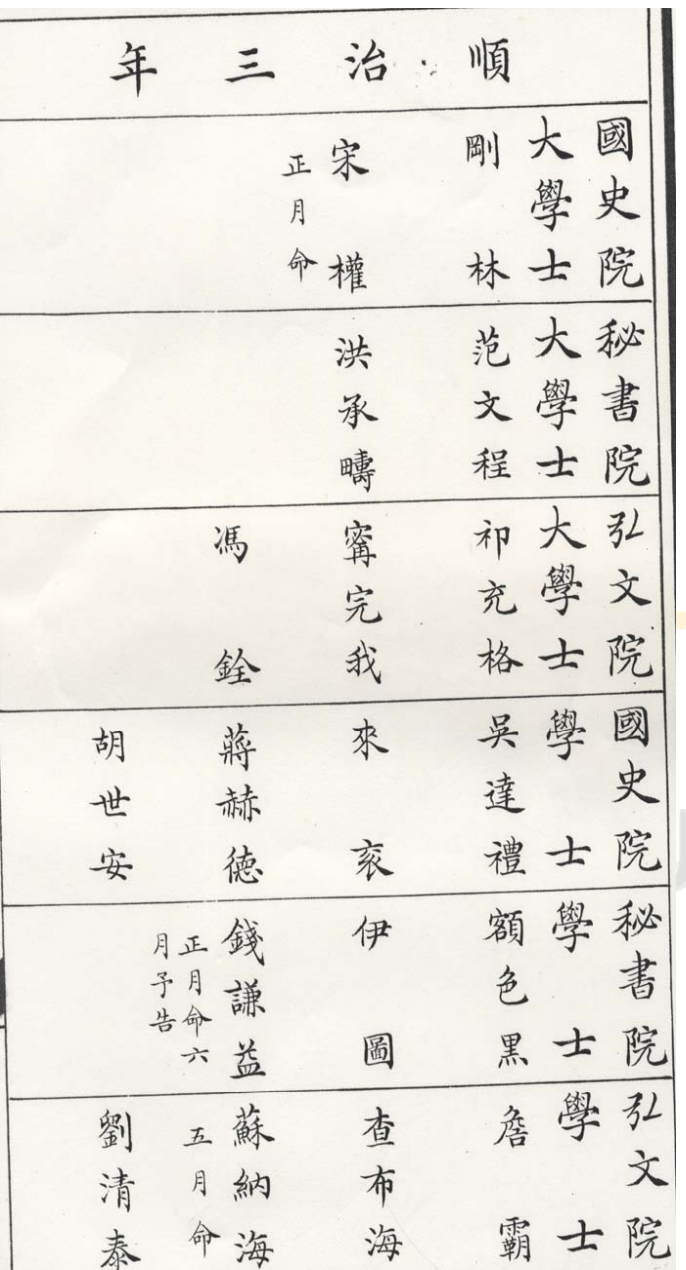 順治三年
國史院
大學士
剛林
宋權
正月命
秘書院
大學士
范文程
洪承疇
弘文院
大學士
祁充格
甯完我
馮銓
國史院
學士
吳達禮
來袞
蔣赫德
胡世安
秘書院
學士
額色黑
伊圖
錢謙益
正月命六
月予告
弘文院
學士
詹霸
查布海
蘇納海
五月命
劉清泰